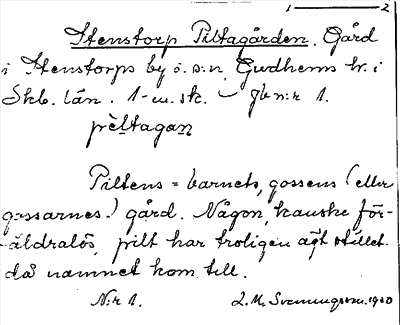 1 ——— 2
Stenstorp Piltagården. Gård
i Stenstorps by o. s:n, Gudhems hr. i
Skb. län. 1-m. sk. – jb n:r 1.
pèltagan
Piltens = barnets, gossens (eller
gossarnes) gård. Någon, kanske för-
äldralös, pilt har troligen ägt stället
då namnet kom till.
N:r 1. L. M. Svenungsson. 1900